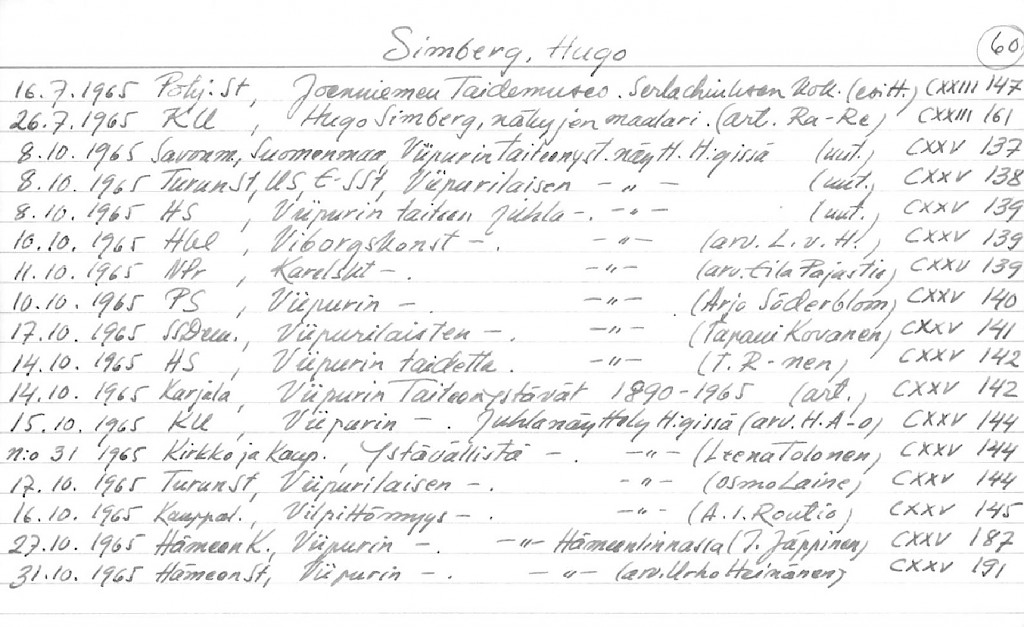 Simberg, Hugo 60
16.7.1965 Pohj. St, Joenniemen Taidemuseo. Serlachiuksen kok. (esitt.) CXXIII 147
26.7.1965 KU, Hugo Simberg, näkyjen maalari. (art. Ra-Re) CXXIII 161
8.10.1965 Savonm, Suomenmaa, Viipurin taiteenyst. näytt. H:gissä (uut.) CXXV 137
8.10.1965 Turun St, US, E-SSt, Viipurilaisen -"- (uut.) CXXV 138
8.10.1965 HS, Viipurin taiteen juhla -. -"- (uut.) CXXV 139
10.10.1965 Hbl, Viborgskonst -. -"- (arv. L. v. H.) CXXV 139
11.10.1965 NPr, Karelskt -. -"- (arv. Eila Pajastie) CXXV 139
10.10.1965 PS, Viipurin -. -"- (Arjo Söderblom) CXXV 140
17.10.1965 SSDem., Viipurilaisten -. -"- (Tapani Kovanen) CXXV 141
14.10.1965 HS, Viipurin taidetta. -"- (T. R-nen) CXXV 142
14.10.1965 Karjala, Viipurin Taiteenystävät 1890-1965 (art.) CXXV 142
15.10.1965 KU, Viipurin -. Juhlanäyttely H:gissä (arv. H. A-o) CXXV 144
n:o 31 1965 Kirkko ja Kaup., Ystävällistä -. -"- (Leena Tolonen) CXXV 144
17.10.1965 Turun St, Viipurilaisen -. -"- (Osmo Laine) CXXV 144
16.10.1965 Kauppal., Vilpittömyys -. -"- (A. I. Routio) CXXV 145
27.10.1965 Hämeen K., Viipurin -. -"- Hämeenlinnassa (J. Jäppinen) CXXV 187
31.10.1965 Hämeen St, Viipurin -. -"- (arv. Urho Heinänen) CXXV 191